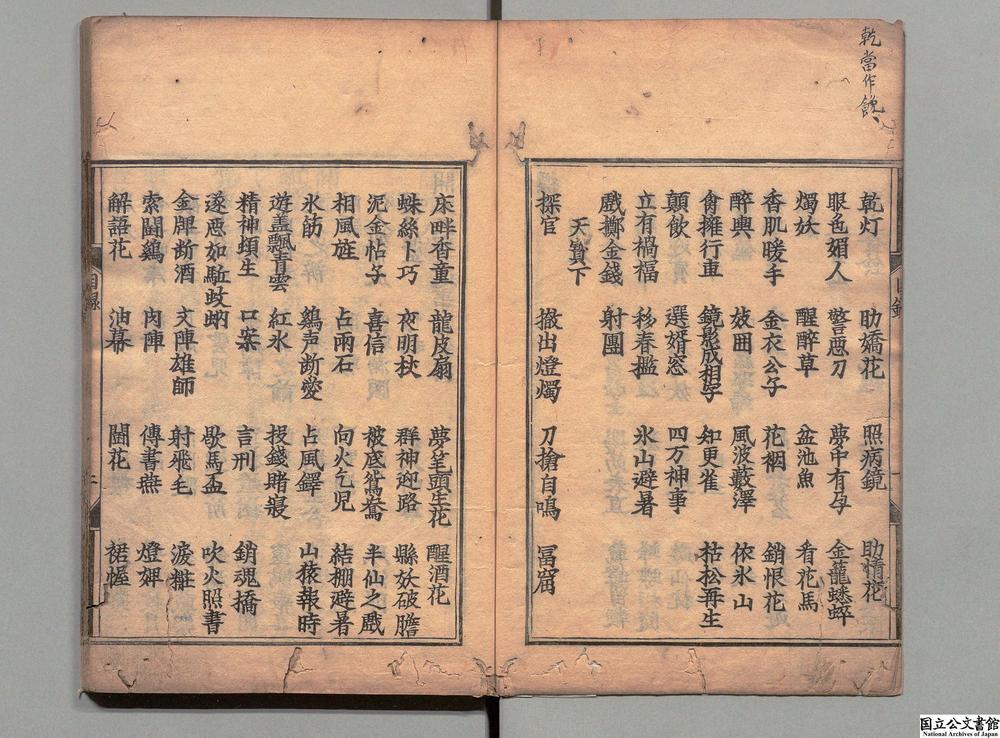 乾當作饞
乾灯　助嬌花　照病鏡　助情花
眼色媚人　警惡刀　夢中有孕　金籠蟋蟀
燭妖　醒醉草　盆池魚　看花馬
香肌暖手　金衣公子　花裀　銷恨花
醉輿　妓囲　風波藪澤　依氷山
禽擁行車　鏡影成相字　知更雀　枯松再生
顛飲　選婿窓　四方神事
立有禍福　移春檻　氷山避暑
戲擲金錢　射團
天寳下
探官　撤出燈燭　刀搶自鳴　冨窟
床畔香童　龍皮扇　夢笔頭生花　醒酒花
蛛絲卜巧　夜明杖　群神迎路　縣妖破膽
泥金帖子　喜信　被底鴛鴦　半仙之戲
相風旌　占雨石　向火乞児　結棚避暑
氷筋　鷄声断愛　占風鐸　山猿報時
遊盖飄青雲　紅氷　投錢賭寢
精神頓生　口案　言刑　銷魂橋
逐惡如駈蚊蚋　文陣雄師　歇馬盃　吹火照書
金牌断酒　肉陣　射飛毛　淚粧
索鬪鷄　油幕　傳書燕　燈婢
解語花　鬪花　裙幄
目録
国立公文書館
National Archives of Japan